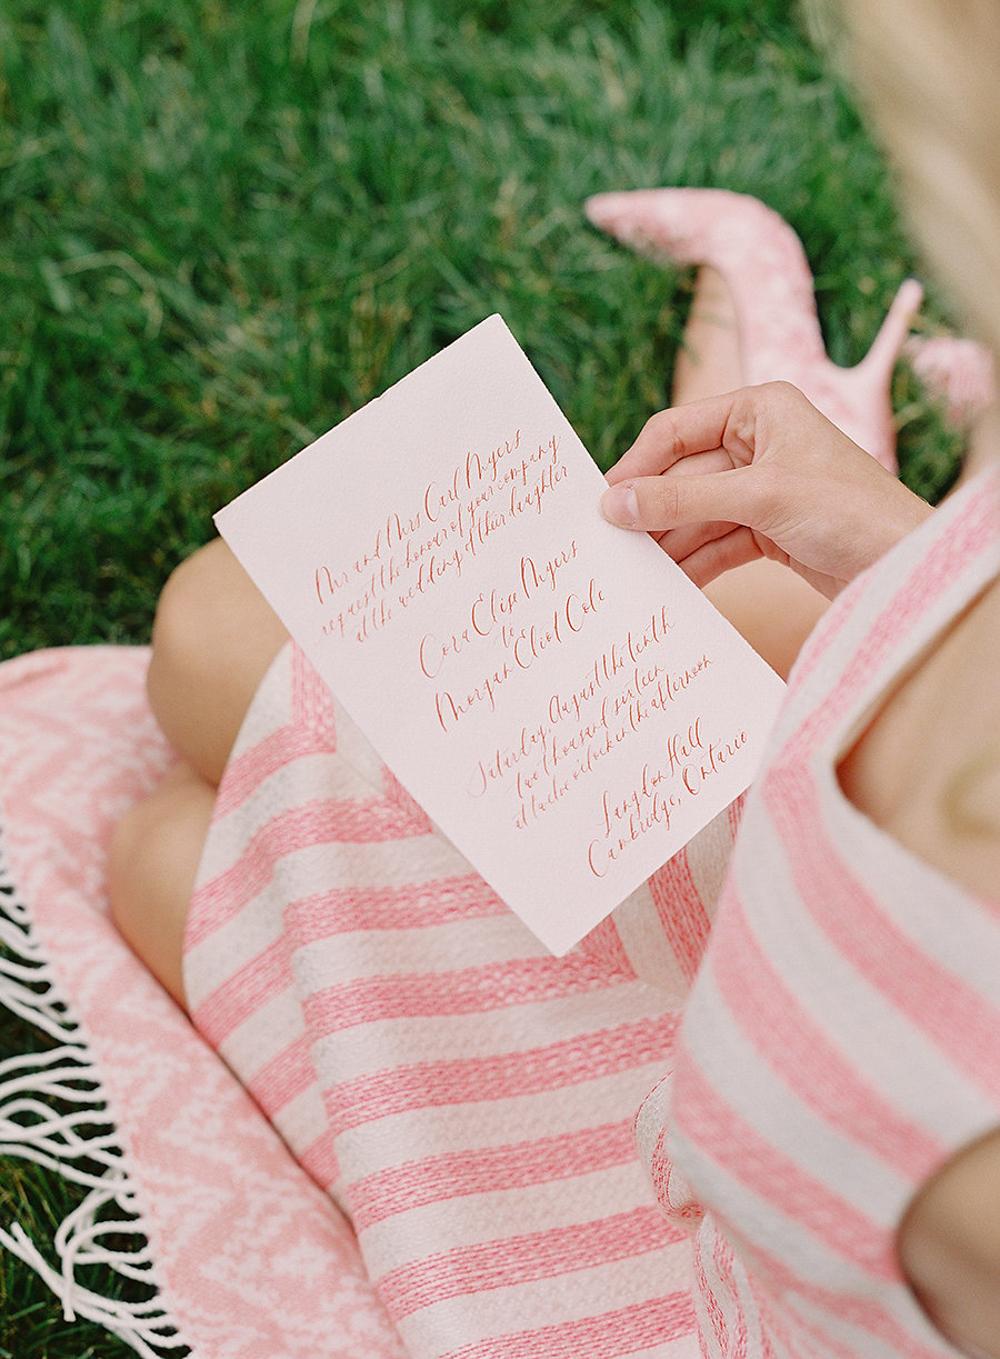 Mr and Mrs Carl Myers
request the honour of your company
at the wedding of their daughter
Cora Elise Myers
to
Morgan Eliot Cole
Saturday, August the tenth
two thousand sixteen
at twelve o'clock in the afternoon
Langdon Hall
Cambridge, Ontario